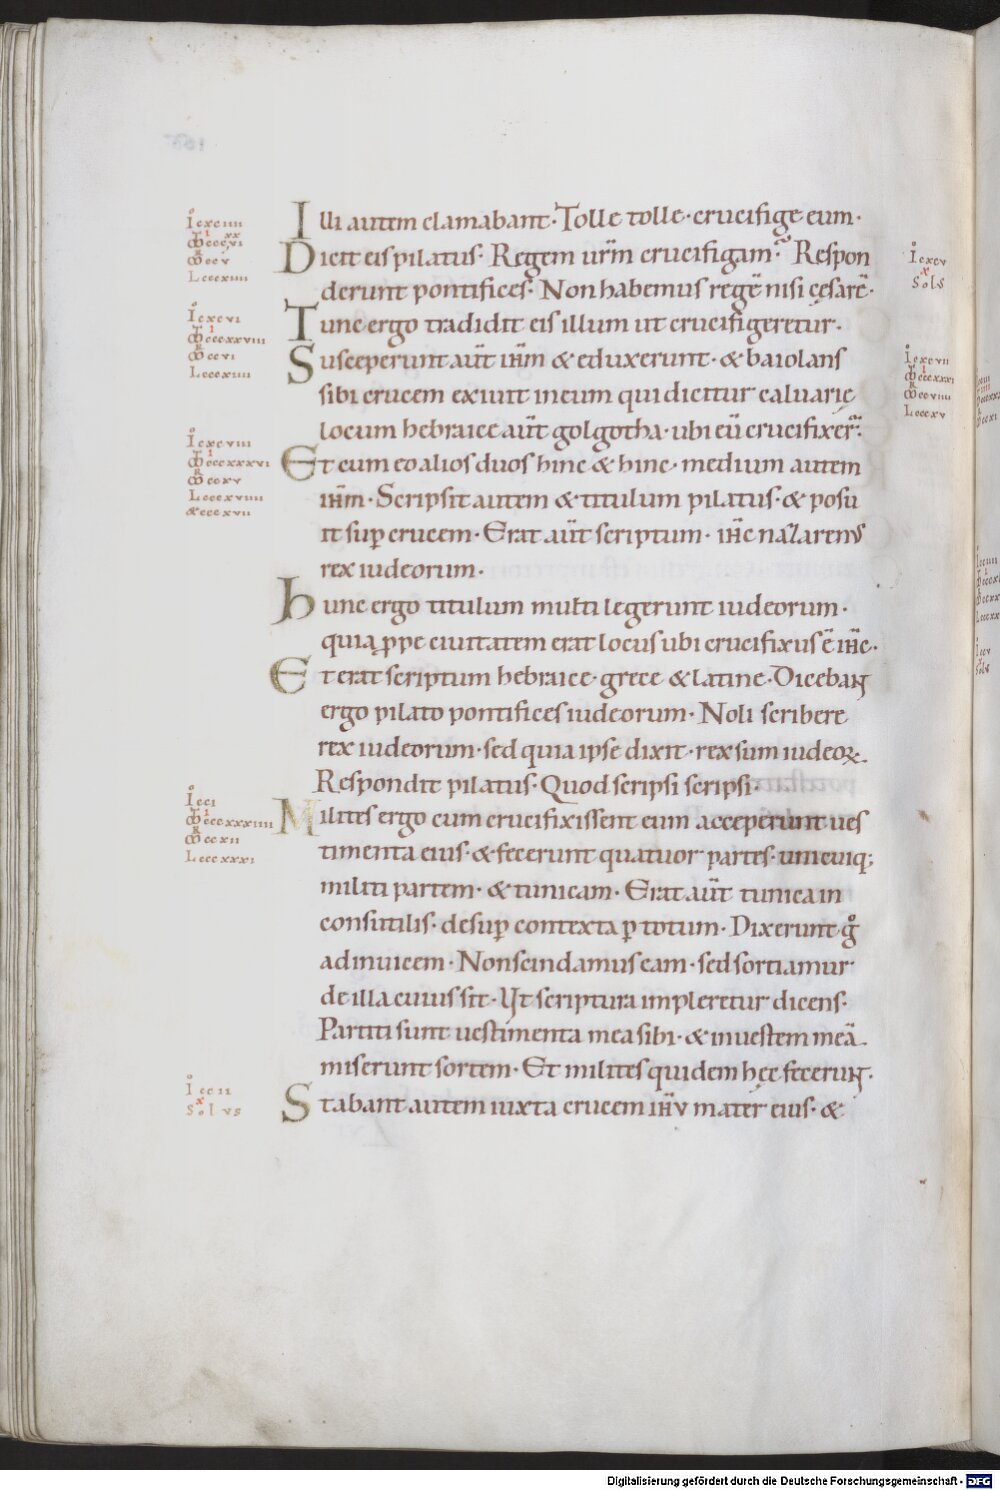 Illi autem clamabant· Tolle tolle· crucifige eum·
Dicit eis pilatus· Regem ur̄m crucifigam? Respon
derunt pontifices· Non habemus regē nisi cęsarē·
Tunc ergo tradidit eis illum ut crucifigeretur·
Susceperunt aūt ih̄m & eduxerunt· & baiolans
sibi crucem exiuit in eum qui dicitur caluarię
locum hebraice aūt golgotha· ubi eū crucifixer̄·
Et cum eo alios duos hinc & hinc· medium autem
ih̄m· Scripsit autem & titulum pilatus· & posu
it sup̄ crucem· Erat aūt scriptum· ih̄c nazarenus
rex iudeorum·
Hunc ergo titulum multi legerunt iudeorum·
quia ꝓpe ciuitatem erat locus ubi crucifixus ē ih̄c·
Et erat scriptum hebraice· grece & latine· Dicebant
ergo pilato pontifices iudeorum· Noli scribere
rex iudeorum· sed quia ipse dixit· rex sum iudeoꝝ·
Respondit pilatus· Quod scripsi scripsi·
Milites ergo cum crucifixissent eum acceperunt ues
timenta eius· & fecerunt quatuor partes· unicuiq;
militi partem· & tunicam· Erat aūt tunica in
consutilis· desup̄ contexta ꝑ totum· Dixerunt gͦ
adinuicem· Non scindamus eam· sed sortiamur
de illa cuius sit· Ut scriptura impleretur dicens·
Partiti sunt uestimenta mea sibi· & in uestem meā·
miserunt sortem· Et milites quidem hęc fecerunt·
Stabant autem iuxta crucem ih̄u mater eius· &
Digitalisierung gefördert durch die Deutsche Forschungsgemeinschaft · DFG